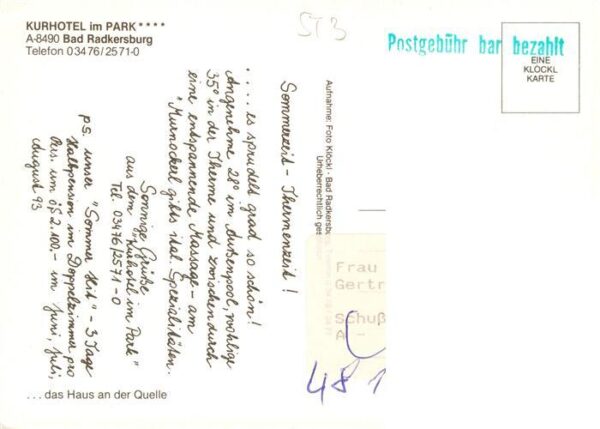 KURHOTEL im PARK ****
A-8490 Bad Radkersburg
Telefon 03476/2571-0
ST3
Postgebühr bar bezahlt
EINE
KLÖCKL
KARTE
Sommerzeit - Thermenzeit!
.... es sprudelt grad so schön!
Angenehme 28° im Außenpool, wohlige
35° in der Therme und zwischendurch
eine entspannende Massage - am
"Murnockerl" gibts ital. Spezialitäten.
Sonnige Grüße
aus dem "Kurhotel im Park"
Tel. 03476/2571-0
ps. unser "Sommer Hit" - 3 Tage
Halbpension im Doppelzimmer pro
Pers. um öS 2.100.- im Juni, Juli,
August 93
Aufnahme: Foto Klöckl · Bad Radkersburg
Urheberrechtlich ges
Frau
Gertr
Schuß
A -
481
...das Haus an der Quelle